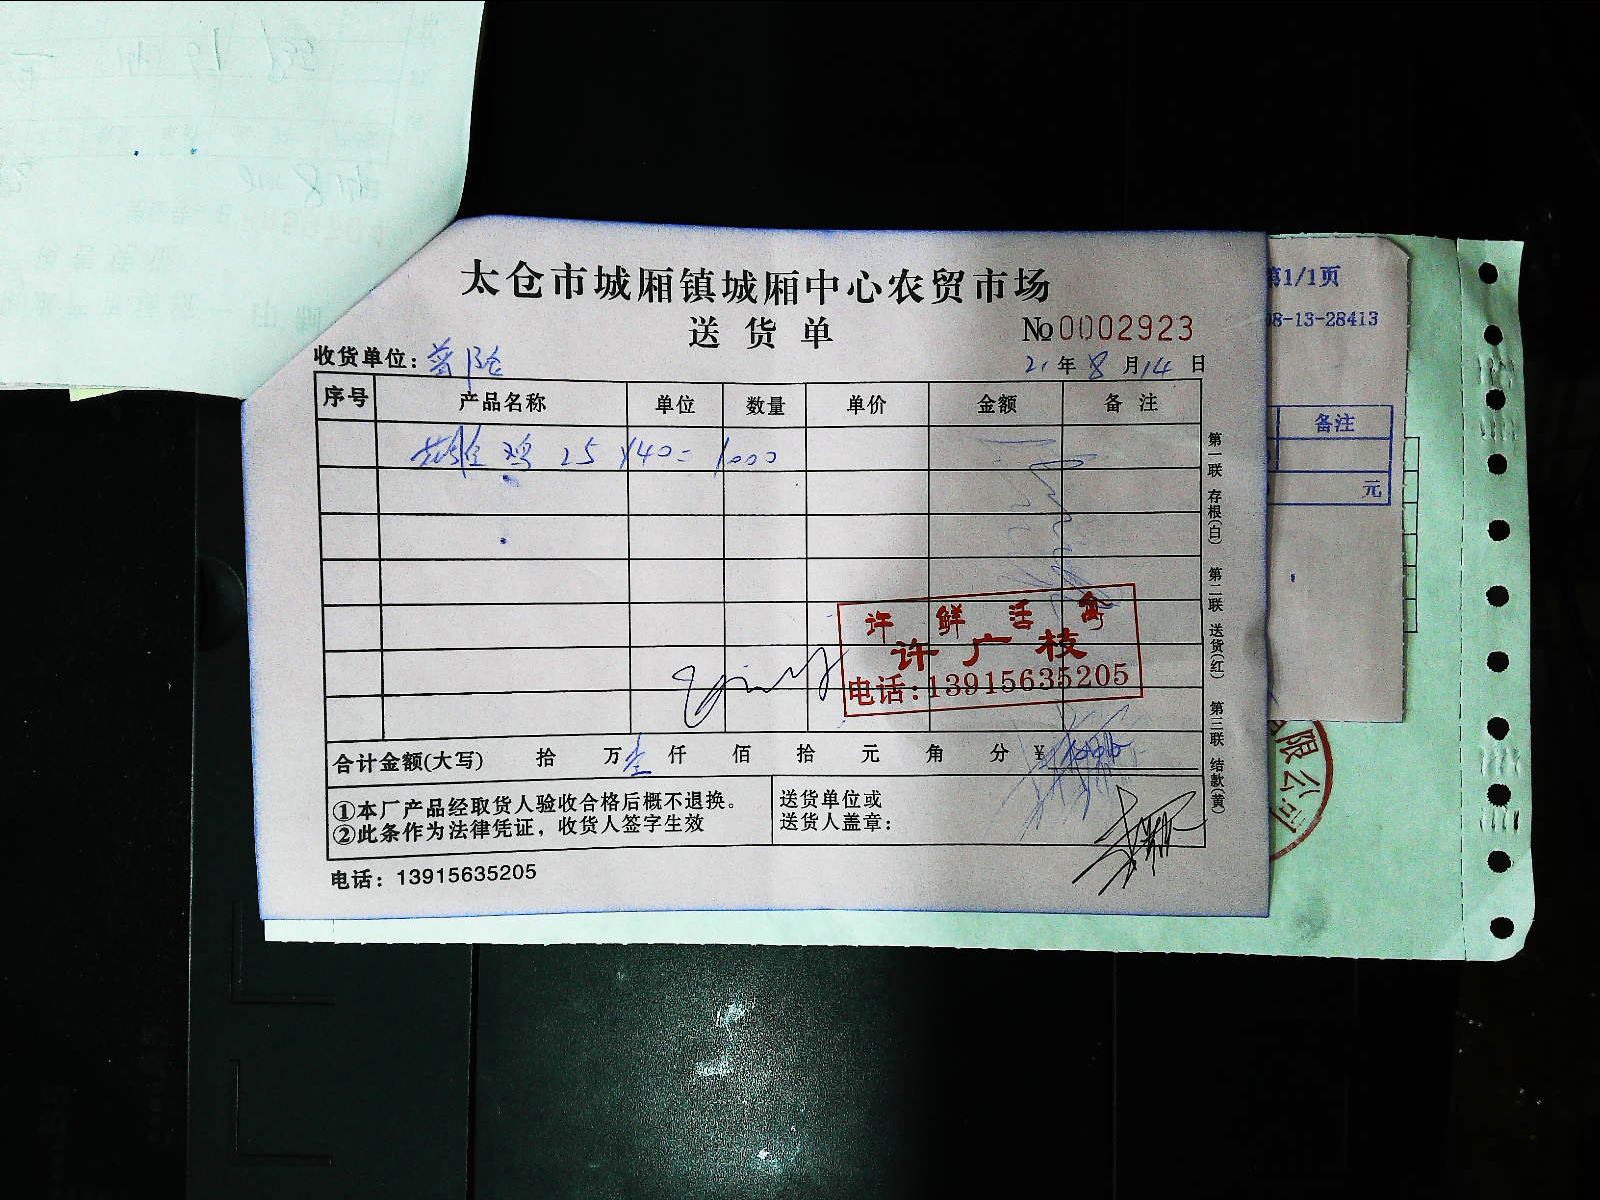 太仓市城厢镇城厢中心农贸市场
送货单 №0002923
收货单位: 21年8月14日
序号 产品名称 单位 数量 单价 金额 备注
鸡 25 ×40= 1000
许 鲜 活 禽
许广枝
电话:13915635205
合计金额(大写) 拾 万壹仟 佰 拾 元 角 分 ¥
①本厂产品经取货人验收合格后概不退换。
②此条作为法律凭证，收货人签字生效
送货单位或
送货人盖章:
电话: 13915635205
第一联 存根(白) 第二联 送货(红) 第三联 结款(黄)
第1/1页
08-13-28413
备注
元
限公司